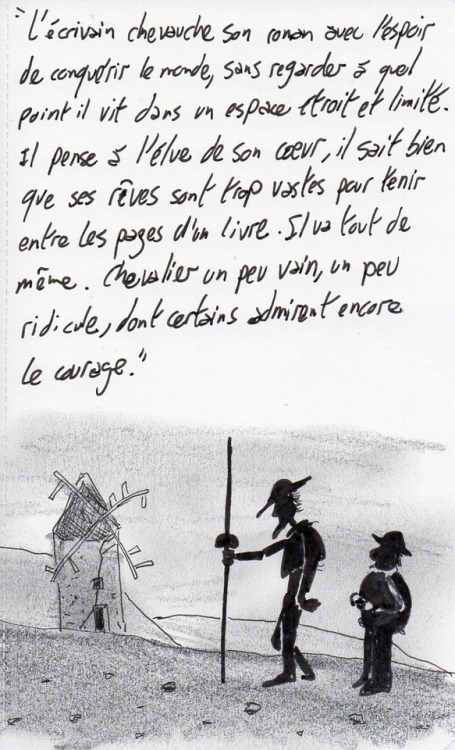 "L'écrivain chevauche son roman avec l'espoir
de conquérir le monde, sans regarder à quel
point il vit dans un espace étroit et limité.
Il pense à l'élue de son cœur, il sait bien
que ses rêves sont trop vastes pour tenir
entre les pages d'un livre. Il va tout de
même. Chevalier un peu vain, un peu
ridicule, dont certains admirent encore
le courage."